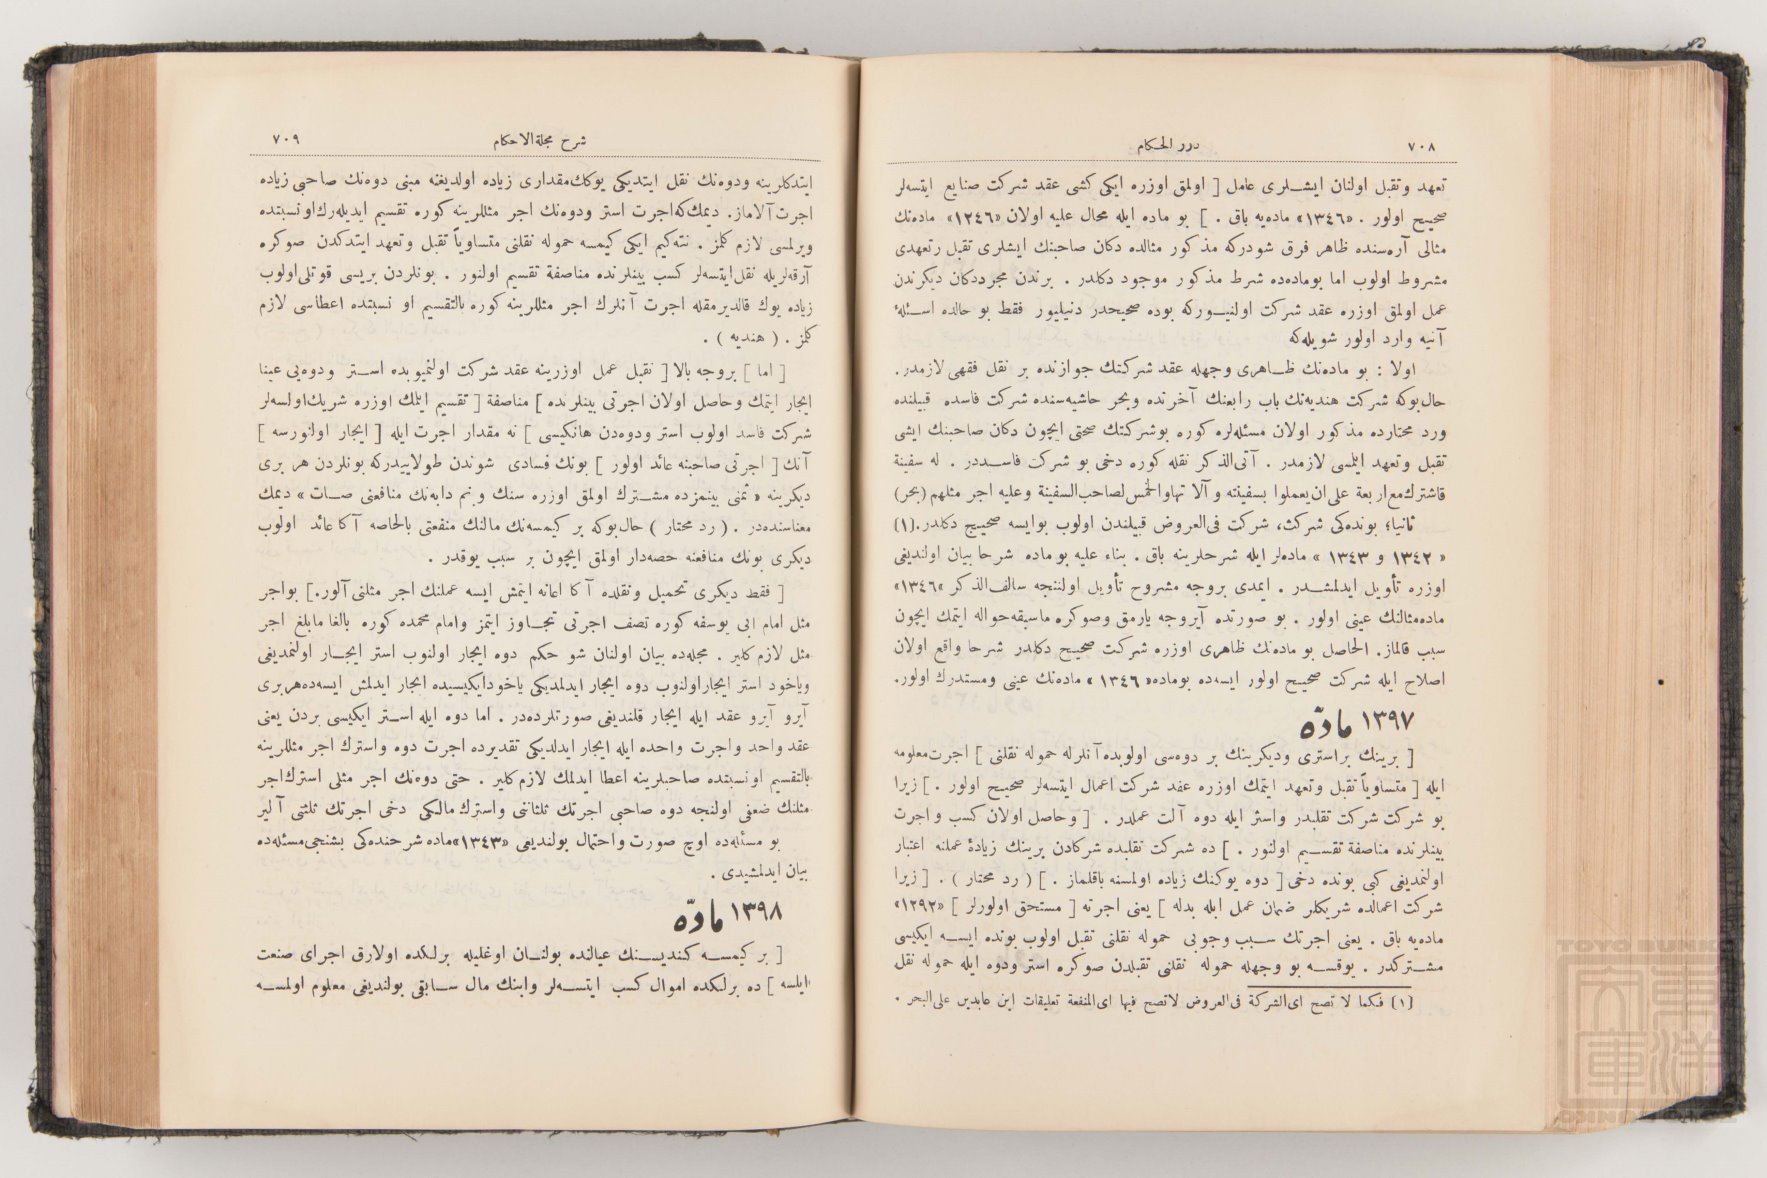 ٧٠٨
درر الحكام
تعهد وتقبل اولنان ايشلرى عامل [ اولمق اوزره ايكى كشى عقد شركت صنايع ايتسه‌لر
صحيح اولور . «١٣٤٦» ماده‌يه باق . ] بو ماده ايله محال عليه اولان «١٢٤٦» ماده‌نك
مثالى آره‌سنده ظاهر فرق شودركه مذكور مثالده دكان صاحبنك ايشلرى تقبل وتعهدى
مشروط اولوب اما بوماده‌ده شرط مذكور موجود دكلدر . برندن مجرددكان ديكرندن
عمل اولمق اوزره عقد شركت اولنيوركه بوده صحيحدر دنيليور فقط بو حالده اسئلهٔ
آتيه وارد اولور شويله‌كه
اولا : بو ماده‌نك ظاهرى وجهله عقد شركتك جوازنده بر نقل فقهى لازمدر.
حال‌بوكه شركت هنديه‌نك باب رابعنك آخرنده وبحر حاشيه‌سنده شركت فاسده قبيلنده
ورد محتارده مذكور اولان مسئله‌لره كوره بوشركتك صحتى ايچون دكان صاحبنك ايشى
تقبل وتعهد ايلمسى لازمدر . آتى‌الذكر نقله كوره دخى بو شركت فاسددر . له سفينة
فاشترك‌مع‌اربعة على‌ان‌يعملوا بسفينته وآلاتها‌والخمس‌لصاحب‌السفينة وعليه اجر مثلهم (بحر)
ثانيا؛ بونده‌كى شركت، شركت فى‌العروض قبيلندن اولوب بوايسه صحيح دكلدر.(١)
« ١٣٤٢ و ١٣٤٣ » ماده‌لر ايله شرحلرينه باق . بناء عليه بوماده شرحا بيان اولنديغى
اوزره تأويل ايدلمشدر . ايمدى بروجه مشروح تأويل اولننجه سالف‌الذكر «١٣٤٦»
ماده‌مثالنك عينى اولور . بو صورتده آيروجه يازمق وصوكره ماسبقه‌حواله ايتمك ايچون
سبب قالماز. الحاصل بو ماده‌نك ظاهرى اوزره شركت صحيح دكلدر شرحا واقع اولان
اصلاح ايله شركت صحيح اولور ايسه‌ده بوماده« ١٣٤٦ » ماده‌نك عينى ومستدرك اولور.
١٣٩٧ مادّه
[ برينك براسترى وديكرينك بر دوه‌سى اولوبده‌آنلرله حموله نقلنى ] اجرت‌معلومه
ايله [ متساوياً تقبل وتعهد ايتمك اوزره عقد شركت اعمال ايتسه‌لر صحيح اولور . ] زيرا
بو شركت شركت تقلبدر واستر ايله دوه آلت عملدر . [ وحاصل اولان كسب واجرت
بينلرنده مناصفة تقسيم اولنور . ] ده شركت تقلبده شركادن برينك زيادهٔ عملنه اعتبار
اولنمديغى كبى بونده دخى [ دوه يوكنك زياده اولمسنه باقلماز . ] ( رد محتار ) . [ زيرا
شركت اعمالده شريكلر ضمان عمل ايله بدله ] يعنى اجرته [ مستحق اولورلر ] «١٢٩٢»
ماده‌يه باق . يعنى اجرتك سبب وجوبى حموله نقلنى تقبل اولوب بونده ايسه ايكيسى
مشتركدر . يوقسه بو وجهله حموله نقلنى تقبلدن صوكره استر ودوه ايله حموله نقل
(١) فكما لا تصح اى‌الشركة فى‌العروض لاتصح فيها اى‌المنفعة تعليقات ابن عابدين على‌البحر .
٧٠٩
شرح مجلة‌الاحكام
ايتدكلرينه ودوه‌نك نقل ايتديكى يوكك‌مقدارى زياده اولديغنه مبنى دوه‌نك صاحبى زياده
اجرت آلاماز. ديمك‌كه‌اجرت استر ودوه‌نك اجر مثللرينه كوره تقسيم ايديله‌رك‌اونسبتده
ويرلمسى لازم كلمز . نته‌كيم ايكى كيمسه حموله نقلنى متساوياً تقبل وتعهد ايتدكدن صوكره
آرقه‌لريله نقل‌ايتسه‌لر كسب بينلرنده مناصفة تقسيم اولنور . بونلردن بريسى قوتلى‌اولوب
زياده يوك قالديرمقله اجرت آنلرك اجر مثللرينه كوره بالتقسيم او نسبتده اعطاسى لازم
كلمز . ( هنديه ) .
[ اما ] بروجه بالا [ تقبل عمل اوزرينه عقد شركت اولنميوبده استر ودوه‌يى عينا
ايجار ايتمك وحاصل اولان اجرتى بينلرنده ] مناصفة [ تقسيم ايلمك اوزره شريك‌اولسه‌لر
شركت فاسد اولوب استر ودوه‌دن هانكيسى ] نه مقدار اجرت ايله [ ايجار اولنورسه ]
آنك [ اجرتى صاحبنه عائد اولور ] بونك فسادى شوندن طولاييدركه بونلردن هر برى
ديكرينه « ثمنى بينمزده مشترك اولمق اوزره سنك و بنم دابه‌نك منافعنى صات » ديمك
معناسنده‌در . ( رد محتار ) حال‌بوكه بر كيمسه‌نك مالنك منفعتى بالخاصه آكا عائد اولوب
ديكرى بونك منافعنه حصه‌دار اولمق ايچون بر سبب يوقدر .
[ فقط ديكرى تحميل ونقلده آكا اعانه ايتمش ايسه عملنك اجر مثلنى آلور.] بواجر
مثل امام ابى يوسفه كوره نصف اجرتى تجاوز ايتمز وامام محمده كوره بالغا مابلغ اجر
مثل لازم‌كلير . مجله‌ده بيان اولنان شو حكم دوه ايجار اولنوب استر ايجار اولنمديغى
وياخود استر ايجاراولنوب دوه ايجار ايدلمديكى ياخودايكيسيده ايجار ايدلمش ايسه‌ده‌هربرى
آيرو آيرو عقد ايله ايجار قلنديغى صورتلرده‌در . اما دوه ايله استر ايكيسى بردن يعنى
عقد واحد واجرت واحده ايله ايجار ايدلديكى تقديرده اجرت دوه واسترك اجر مثللرينه
بالتقسيم اونسبتده صاحبلرينه اعطا ايدلمك لازم‌كلير . حتى دوه‌نك اجر مثلى استرك‌اجر
مثلنك ضعفى اولنجه دوه صاحبى اجرتك ثلثانى واسترك مالكى دخى اجرتك ثلثنى آلير
بو مسئله‌ده اوچ صورت واحتمال بولنديغى «١٣٤٣»ماده شرحنده‌كى بشنجى‌مسئله‌ده
بيان ايدلمشيدى .
١٣٩٨ مادّه
[ بر كيمسه كنديسنك عيالنده بولنان اوغليله برلكده اولارق اجراى صنعت
ايلسه ] ده برلكده اموال كسب ايتسه‌لر وابنك مال سابقى بولنديغى معلوم اولمسه